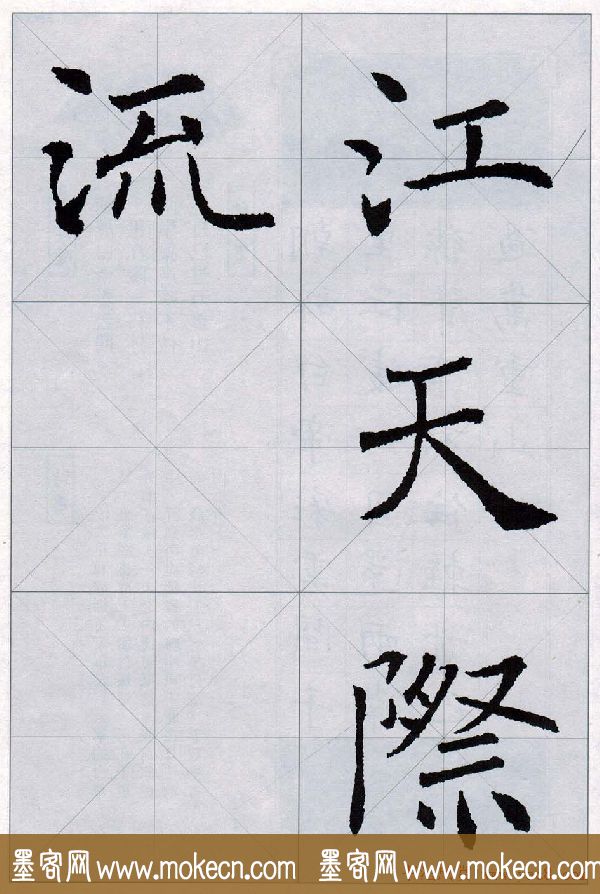 江天際
流
墨客网 www.mokecn.com 墨客网 www.mokecn.com